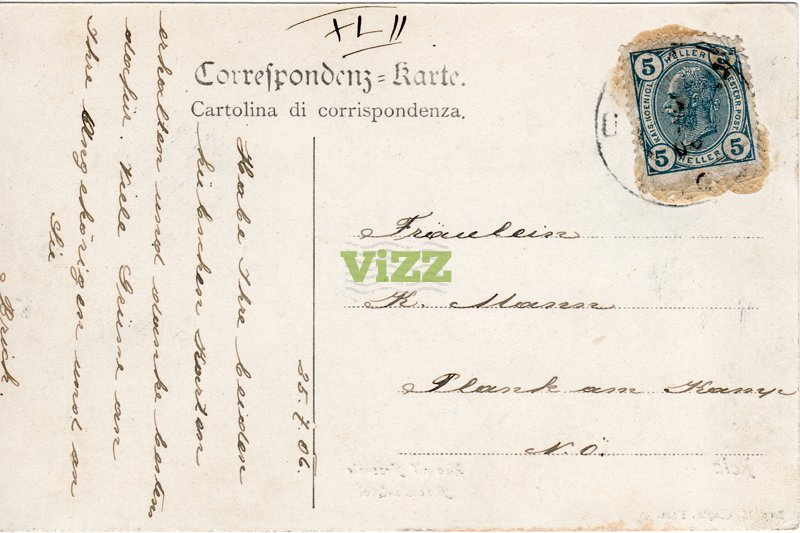 XLII
Correspondenz-Karte.
Cartolina di corrispondenza.
5 HELLER 5
KAIS. KOENIGL. OESTERR. POST
5 HELLER 5
Fräulein
ViZZ
K. Mann
Plank am Kamp
N. Ö.
25. 7. 06.
Habe Ihre beiden
hübschen Karten
erhalten und danke bestens
dafür. Viele Grüsse an
Ihre Angehörigen und an
Sie